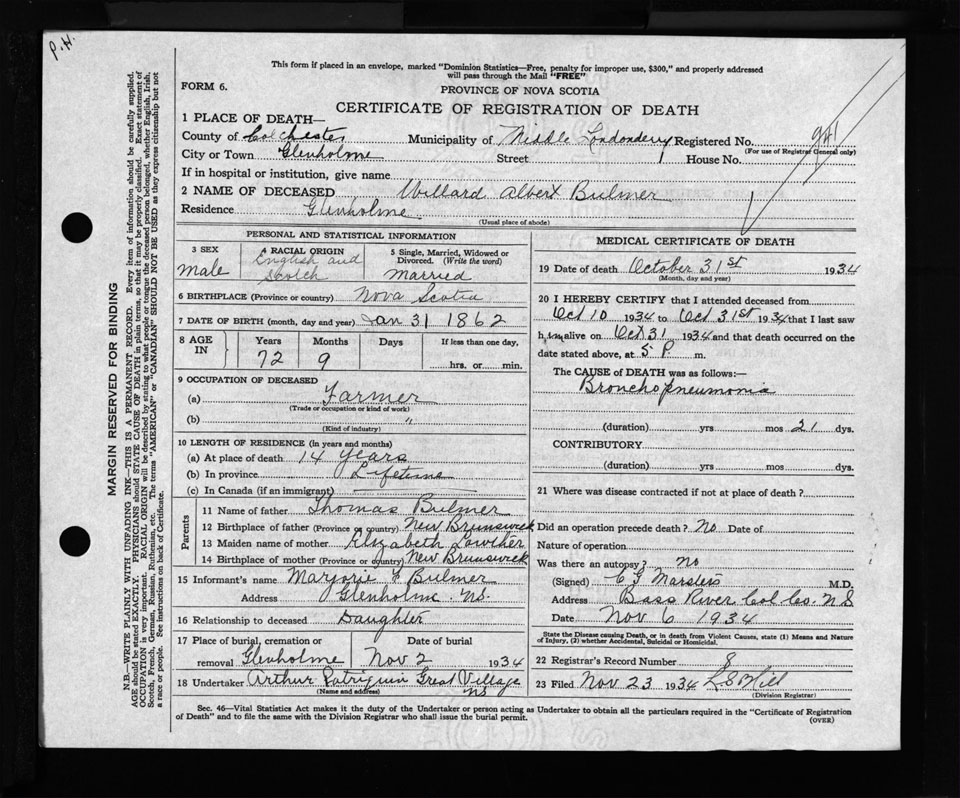 P. H.
This form if placed in an envelope, marked "Dominion Statistics—Free, penalty for improper use, $300," and properly addressed
will pass through the Mail "FREE"
FORM 6.
PROVINCE OF NOVA SCOTIA
CERTIFICATE OF REGISTRATION OF DEATH
1 PLACE OF DEATH—
County of Colchester Municipality of Middle Londonderry Registered No. 941
(For use of Registrar General only)
City or Town Glenholme Street House No.
If in hospital or institution, give name
2 NAME OF DECEASED Willard Albert Bulmer
Residence Glenholme
(Usual place of abode)
PERSONAL AND STATISTICAL INFORMATION
3 SEX 4 RACIAL ORIGIN 5 Single, Married, Widowed or
Divorced. (Write the word)
Male English and
Scotch Married
6 BIRTHPLACE (Province or country) Nova Scotia
7 DATE OF BIRTH (month, day and year) Jan 31 1862
8 AGE
IN Years Months Days If less than one day,
72 9 hrs. or min.
9 OCCUPATION OF DECEASED
(a) Farmer
(Trade or occupation or kind of work)
(b) "
(Kind of industry)
10 LENGTH OF RESIDENCE (in years and months)
(a) At place of death 14 Years
(b) In province Lifetime
(c) In Canada (if an immigrant)
Parents
11 Name of father Thomas Bulmer
12 Birthplace of father (Province or country) New Brunswick
13 Maiden name of mother Elizabeth Lowther
14 Birthplace of mother (Province or country) New Brunswick
15 Informant's name Marjorie F Bulmer
Address Glenholme N.S.
16 Relationship to deceased Daughter
17 Place of burial, cremation or Date of burial
removal Glenholme Nov 2 1934
18 Undertaker Arthur Patriquin Great Village
(Name and address) NS
MEDICAL CERTIFICATE OF DEATH
19 Date of death October 31st 1934
(Month, day and year)
20 I HEREBY CERTIFY that I attended deceased from
Oct 10 1934 to Oct 31st 1934 that I last saw
him alive on Oct 31 1934 and that death occurred on the
date stated above, at 5 P. m.
The CAUSE of DEATH was as follows:—
Bronchopneumonia
(duration) yrs mos 21 dys.
CONTRIBUTORY
(duration) yrs mos dys.
21 Where was disease contracted if not at place of death?
Did an operation precede death? No Date of
Nature of operation
Was there an autopsy? No
(Signed) C G Marsters M.D.
Address Bass River Col Co. N.S
Date Nov 6 1934
State the Disease causing Death, or in death from Violent Causes, state (1) Means and Nature
of Injury, (2) whether Accidental, Suicidal or Homicidal.
22 Registrar's Record Number 8
23 Filed Nov 23 1934
(Division Registrar)
Sec. 46—Vital Statistics Act makes it the duty of the Undertaker or person acting as Undertaker to obtain all the particulars required in the "Certificate of Registration
of Death" and to file the same with the Division Registrar who shall issue the burial permit.
(OVER)
MARGIN RESERVED FOR BINDING
N.B.—WRITE PLAINLY WITH UNFADING INK—THIS IS A PERMANENT RECORD. Every item of information should be carefully supplied.
AGE should be stated EXACTLY. PHYSICIANS should STATE CAUSE OF DEATH in plain terms, so that it may be properly classified. Exact statement of
OCCUPATION is very important. RACIAL ORIGIN will be described by stating to what people or tongue the deceased person belonged, whether English, Irish,
Scotch, French, German, Russian, Ruthenian, etc. The terms "AMERICAN" or "CANADIAN" SHOULD NOT BE USED as they express citizenship but not
a race or people. See instructions on back of Certificate.